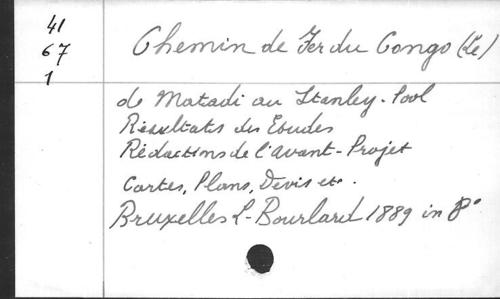 41
67
1
Chemin de Fer du Congo (Le)
de Matadi au Stanley-Pool
Résultats des Etudes
Rédactions de l'avant-Projet
Cartes, Plans, Devis etc.
Bruxelles L-Bourlard 1889 in 8°